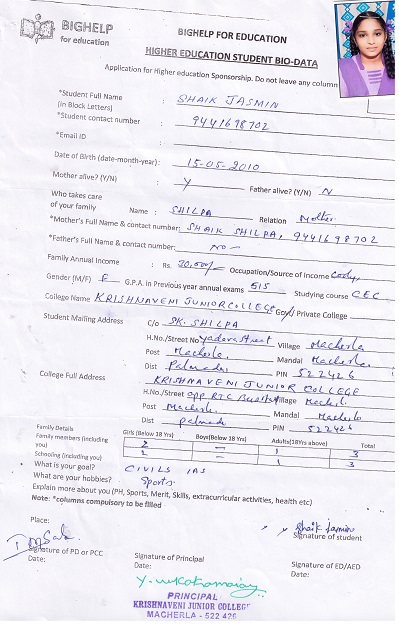 BIGHELP
for education
BIGHELP FOR EDUCATION
HIGHER EDUCATION STUDENT BIO-DATA
Application for Higher education Sponsorship. Do not leave any column
*Student Full Name : SHAIK JASMIN
(in Block Letters)
*Student contact number : 9441698702
*Email ID :
Date of Birth (date-month-year): 15-05-2010
Mother alive? (Y/N) Y Father alive? (Y/N) N
Who takes care
of your family Name : SHILPA Relation Mother
*Mother's Full Name & contact number: SHAIK SHILPA, 9441698702
*Father's Full Name & contact number: NO -
Family Annual Income : Rs. 30,000/- Occupation/Source of Income
Gender (M/F) F G.P.A. in Previous year annual exams 515 Studying course CEC
College Name KRISHNAVENI JUNIOR COLLEGE Gov/ Private College
Student Mailing Address C/o SK. SHILPA
H.No./Street No Yadava Street Village Macherla
Post Macherla. Mandal Macherla.
Dist Palnadu PIN 522426
College Full Address KRISHNAVENI JUNIOR COLLEGE
H.No./Street opp RTC Village Macherla
Post Macherla. Mandal Macherla
Dist palnadu PIN 522426
Family Details Girls (Below 18 Yrs) Boys(Below 18 Yrs) Adults(18Yrs above) Total
Family members (including you) 2 — 1 3
Schooling (including you) 2 — 1 3
What is your goal? CIVILS IAS
What are your hobbies? Sports
Explain more about you (PH, Sports, Merit, Skills, extracurricular activities, health etc)
Note: *columns compulsory to be filled
Place:
Shaik Jasmin
Signature of student
Signature of PD or PCC Signature of Principal Signature of ED/AED
Date: Date: Date:
PRINCIPAL
KRISHNAVENI JUNIOR COLLEGE
MACHERLA - 522 426